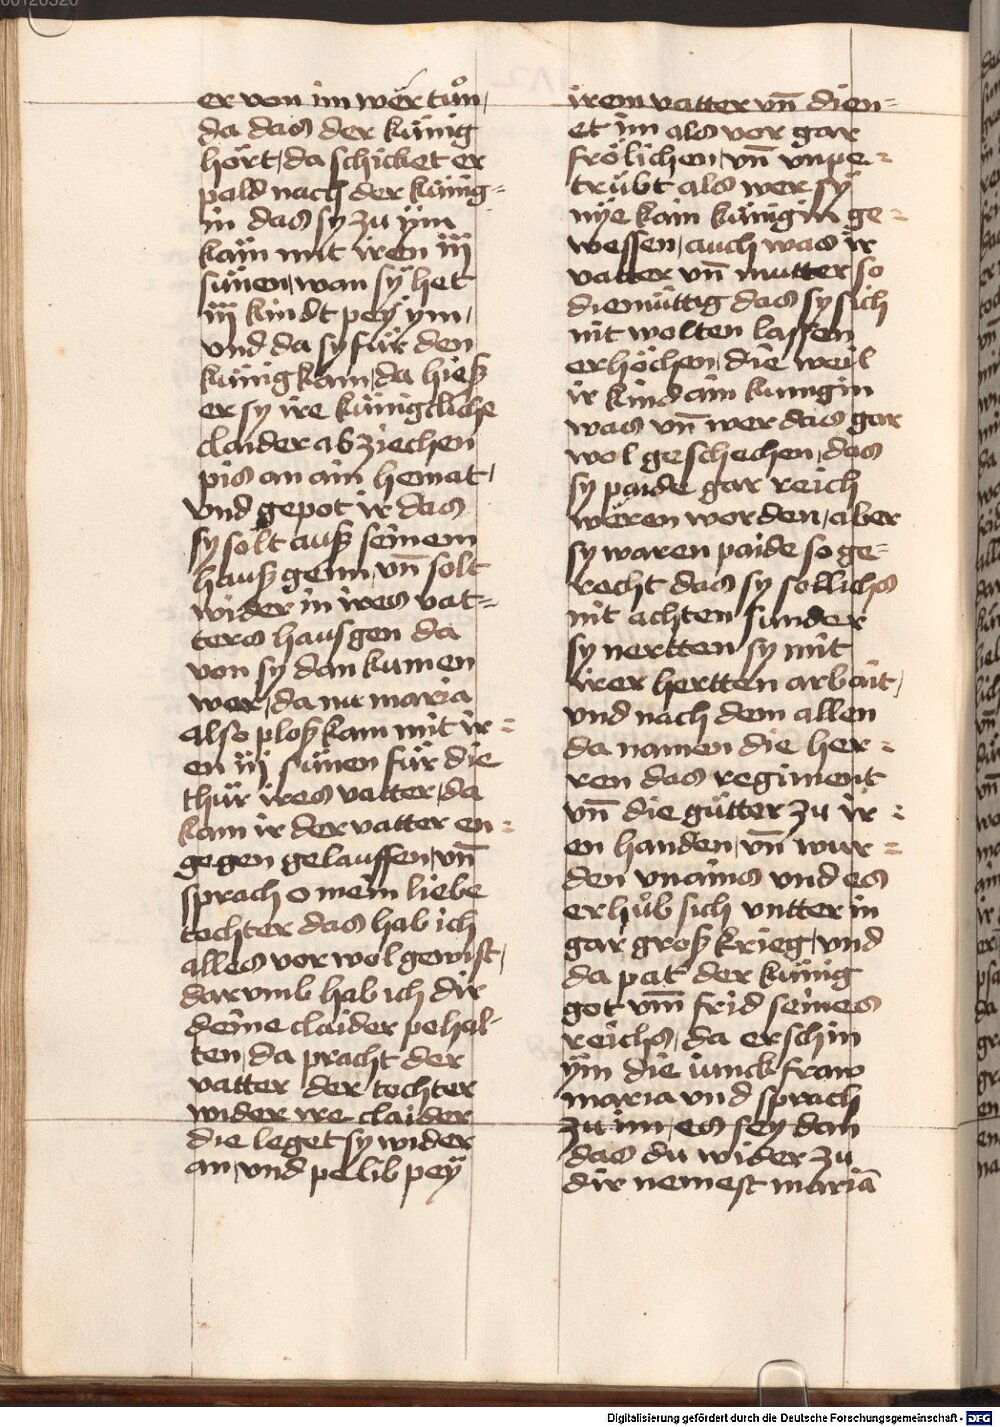 er von im wër tůn,
da das der künig
hört, da schicket er
pald nach der künig=
in das sy zu ÿm
käm mit iren iij
sünen, wan sÿ het
iij kindt peÿ ym,
vnd da sy für den
künig kam, da hieß
er sy ire künigcliche
claider ab ziechen
pis an ain hemat,
vnd gepot ir das
sy solt auß seinem
hauß genn, vn̄ solt
wider in ires vat=
ters haus gen da
von sy dan kumen
wer, da nu maria
also ploß kam mit ir=
en iij sünen für die
thür ires vatter, da
kam ir der vatter en=
gegen gelauffen, vn̄
sprach o mein liebe
tochter das hab ich
alles vor wol gewist,
darvmb hab ich dir
deine claider pehal-
ten, da pracht der
vatter der tochter
wider ire claider
die leget sy wider
an, vnd pelib peÿ
irem vatter vn̄ dien=
et im als vor gar
frölichen, vn̄ vnpe=
trübt als wer sÿ
nÿe kain künigin ge=
wessen, auch was ir
vatter vn̄ mutter so
diemüttig das sy sich
nit wolten lassen
erhöchen, die weil
ir kind ain kunigin
was vn̄ wer das gar
wol geschechen, das
sy paide gar reich
wëren worden, aber
sy waren paide so ge=
recht das sy sollichs
nit achten sunder
sy nertten sy mit
irer hertten arbait,
vnd nach dem allen
da namen die her=
ren das regiment
vn̄ die gütter zu ir=
en handen, vn̄ wur=
den vnains vnd es
erhůb sich vntter in
gar groß krieg, vnd
da pat der künig
got vm̄ frid seines
reichs, da erschin
ÿm die iunckfraw
maria vnd sprach
zu im, es sey dan
das du wider zu
dir nemest mariā
Digitalisierung gefördert durch die Deutsche Forschungsgemeinschaft - DFG